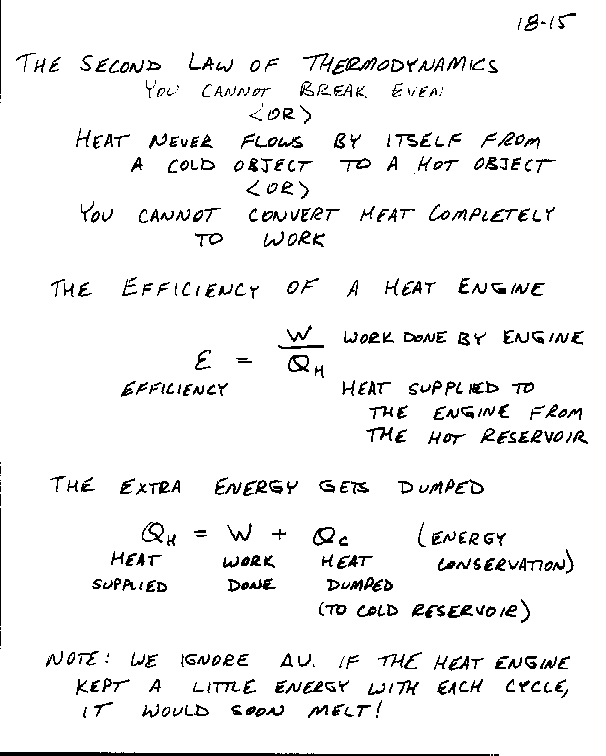 18-15
THE SECOND LAW OF THERMODYNAMICS
YOU CANNOT BREAK EVEN!
<OR>
HEAT NEVER FLOWS BY ITSELF FROM
A COLD OBJECT TO A HOT OBJECT
<OR>
YOU CANNOT CONVERT HEAT COMPLETELY
TO WORK
THE EFFICIENCY OF A HEAT ENGINE
ε = W/Q_H WORK DONE BY ENGINE
EFFICIENCY HEAT SUPPLIED TO
THE ENGINE FROM
THE HOT RESERVOIR
THE EXTRA ENERGY GETS DUMPED
Q_H = W + Q_C (ENERGY
HEAT WORK HEAT CONSERVATION)
SUPPLIED DONE DUMPED
(TO COLD RESERVOIR)
NOTE: WE IGNORE ΔU. IF THE HEAT ENGINE
KEPT A LITTLE ENERGY WITH EACH CYCLE,
IT WOULD SOON MELT!